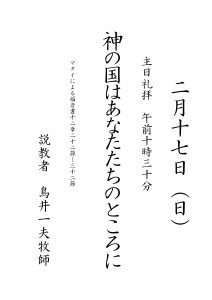 二月十七日（日）
主日礼拝　午前十時三十分
神の国はあなたたちのところに
マタイによる福音書十二章二十二節－三十二節
説教者　鳥井一夫牧師